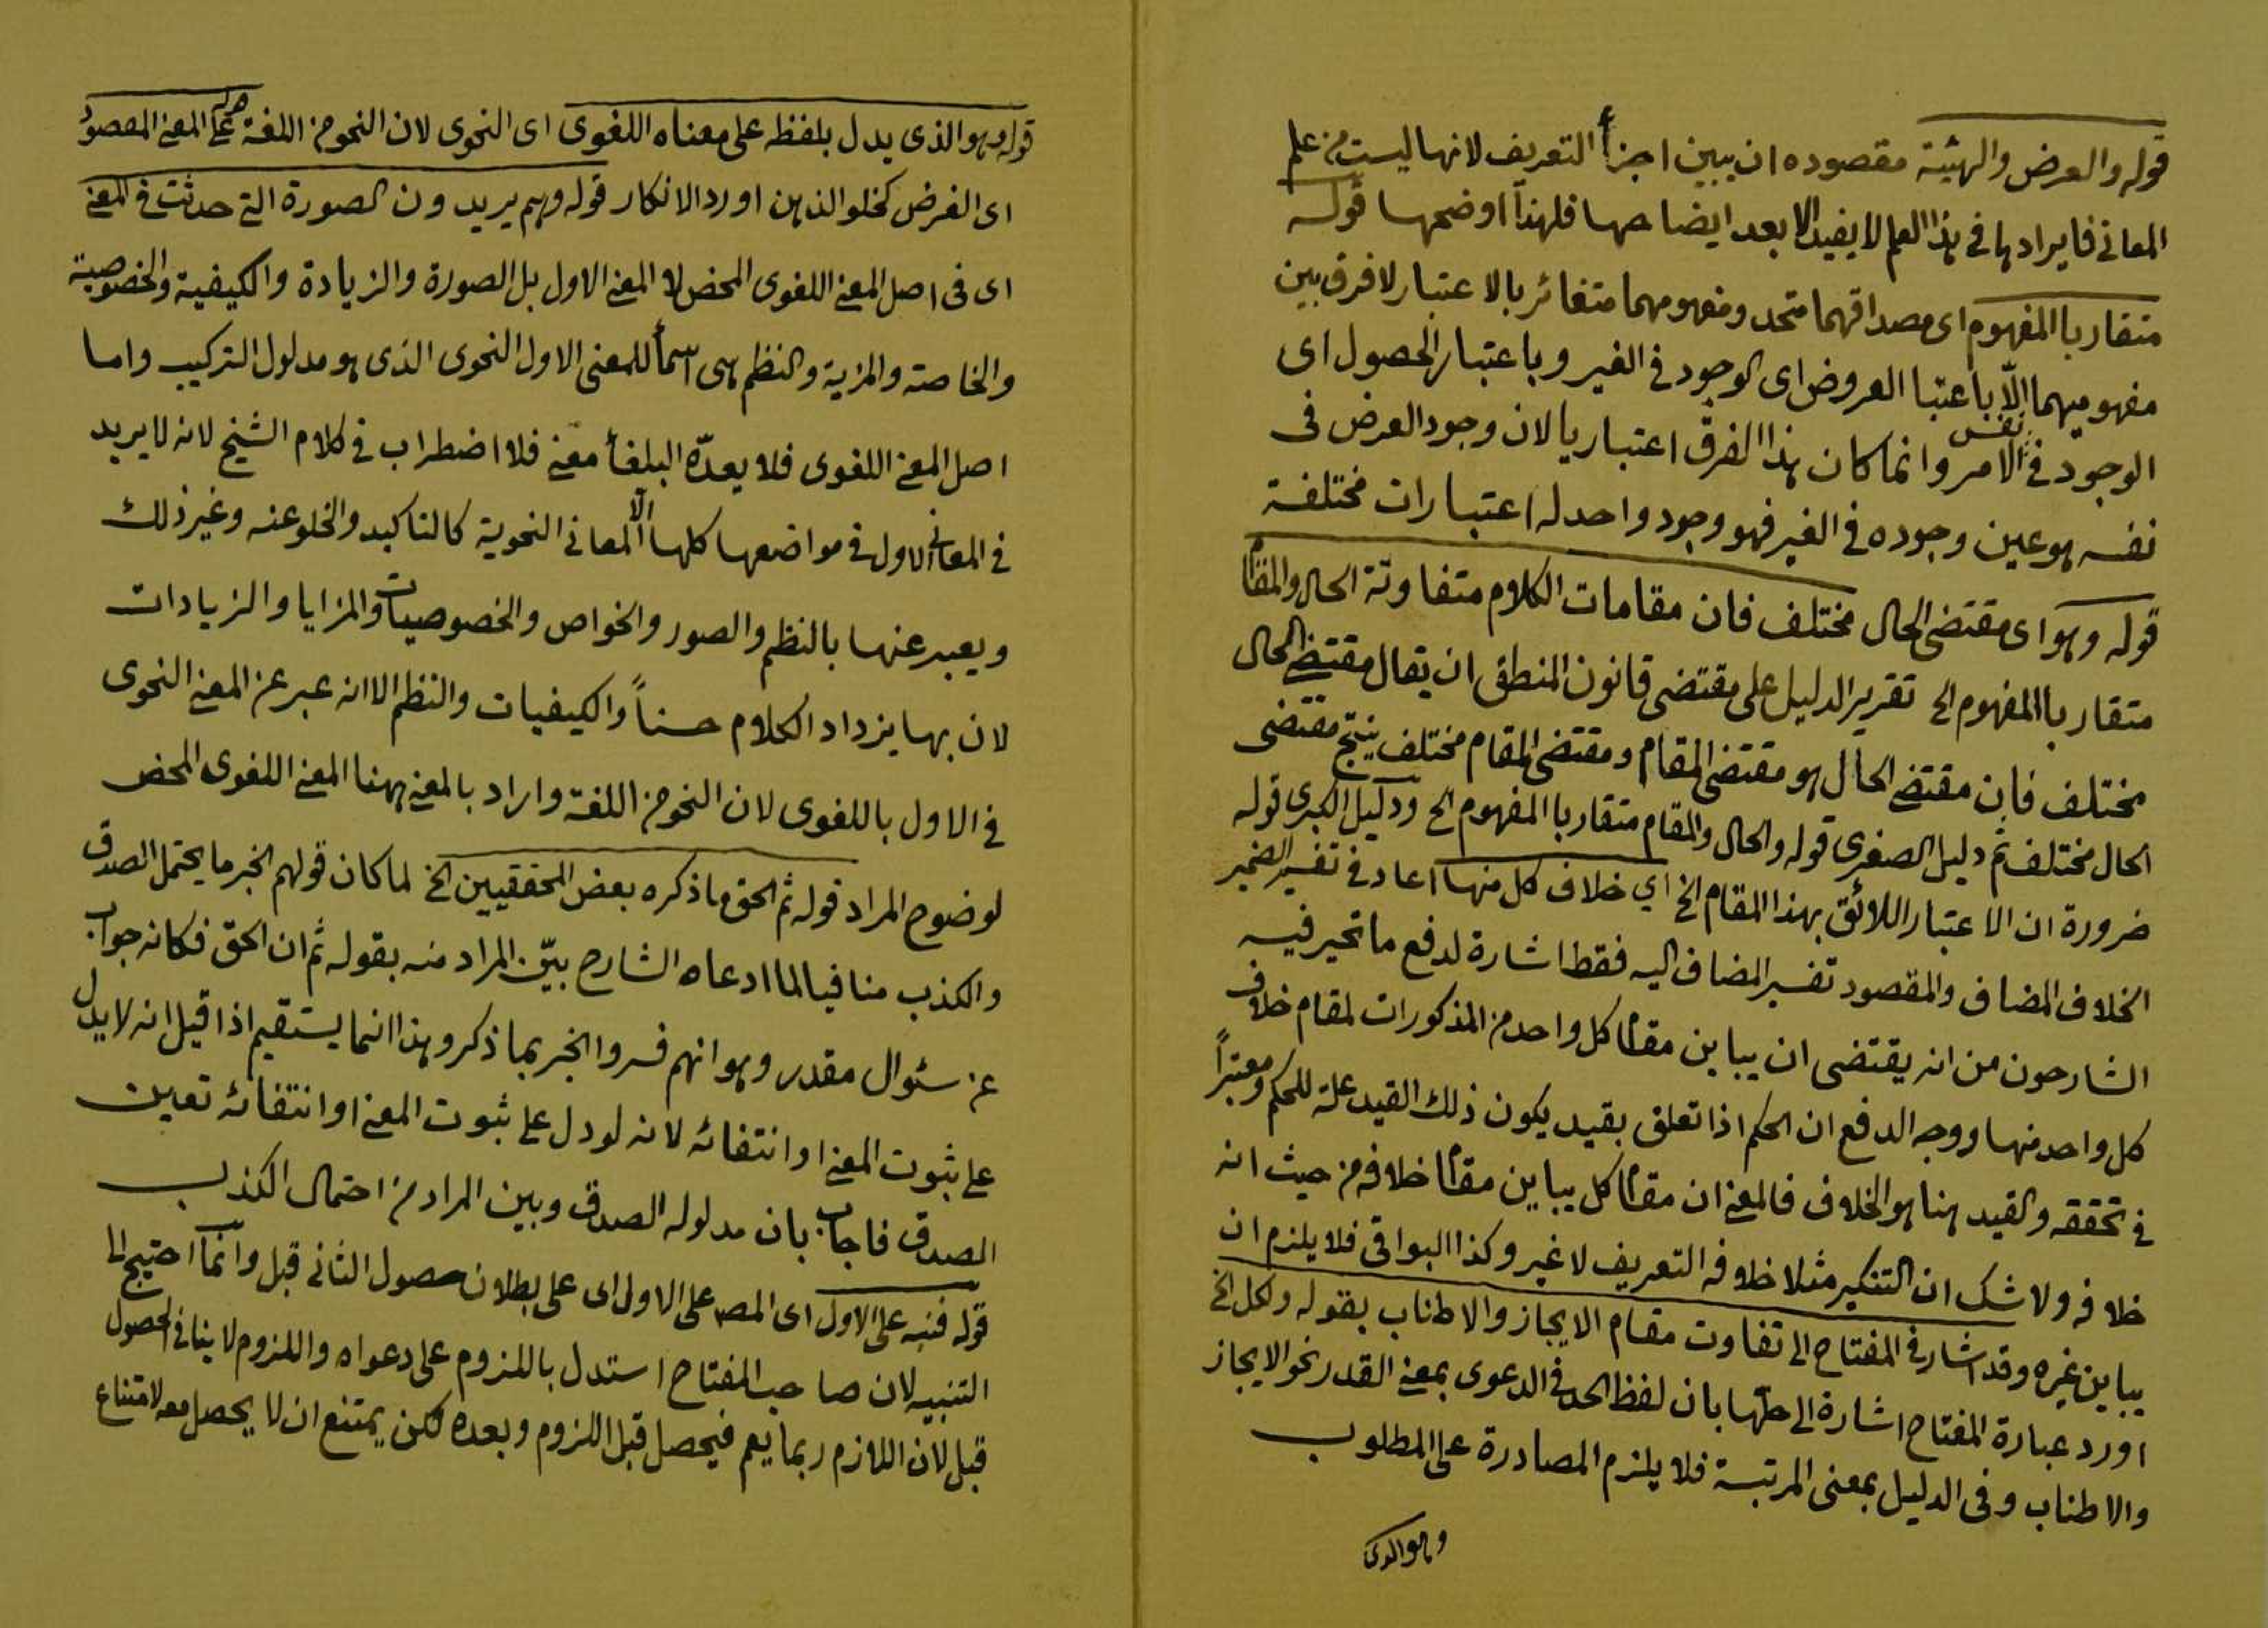 قوله والعرض والهيئة مقصوده ان يبين اجزأ التعريف لانها ليست من علم
المعانى فايرادها فى هذا العلم لا يفيد الا بعد ايضاحها فلهذا اوضحها قوله
متقاربا المفهوم اى مصداقهما متحد ومفهومهما متغائر بالاعتبار لا فرق بين
مفهوميهما الّا باعتبا العروض اى الوجود فى الغير وباعتبار الحصول اى
الوجود فى نفس الامر وانما كان هذا الفرق اعتباريا لان وجود العرض فى
نفسه هو عين وجوده فى الغير فهو وجود واحد له اعتبارات مختلفة
قوله وهو اى مقتضى الحال مختلف فان مقامات الكلام متفاوتة الحال والمقام
متقاربا المفهوم الخ تقرير الدليل على مقتضى قانون المنطق ان يقال مقتضى الحال
مختلف فان مقتضى الحال هو مقتضى المقام ومقتضى المقام مختلف ينتج مقتضى
الحال مختلف ثم دليل الصغرى قوله والحال والمقام متقاربا المفهوم الخ ودليل الكبرى قوله
ضرورة ان الاعتبار اللائق بهذا المقام الخ اي خلاف كل منها اعاد فى تفسير الضمير
الخلاف المضاف والمقصود تفسير المضاف اليه فقط اشارة لدفع ما تحير فيه
الشارحون من انه يقتضى ان يباين مقام كل واحد من المذكورات لمقام خلاف
كل واحد منها ووجه الدفع ان الحكم اذا تعلق بقيد يكون ذلك القيد علة للحكم ومعتبراً
فى تحققه والقيد هنا هو الخلاف فالمعنى ان مقام كل يباين مقام خلافه من حيث انه
خلافه ولا شك ان التنكير مثلا خلافه التعريف لا غير وكذا البواقى فلا يلزم ان
يباين غيره وقد اشار فى المفتاح الى تفاوت مقام الايجاز والاطناب بقوله ولكل الخ
اورد عبارة المفتاح اشارة الى حلها بان لفظ الحد فى الدعوى بمعنى القدر نحو الايجاز
والاطناب وفى الدليل بمعنى المرتبة فلا يلزم المصادرة على المطلوب
قوله وهو الذى يدل بلفظه على معناه اللغوى اى النحوى لان النحو من اللغة قوله على المعنى المقصود
اى الغرض كخلو الذهن اورد الانكار قوله وهم يريدون الصورة التى حدثت فى المعنى
اى فى اصل المعنى اللغوى المحض لا المعنى الاول بل الصورة والزيادة والكيفية والخصوصية
والخاصة والمزية والنظم هى اسمأ للمعنى الاول النحوى الذى هو مدلول التركيب واما
اصل المعنى اللغوى فلا يعدّه البلغأ معنى فلا اضطراب فى كلام الشيخ لانه لا يريد
فى المعانى الاول فى مواضعها كلها الّا المعانى النحوية كالتاكيد والخلو عنه وغير ذلك
ويعبر عنها بالنظم والصور والخواص والخصوصيات والمزايا والزيادات
لان بها يزداد الكلام حسناً والكيفيات والنظم الا انه عبر عن المعنى النحوى
فى الاول باللغوى لان النحو من اللغة واراد بالمعنى ههنا المعنى اللغوى المحض
لوضوح المراد قوله ثم الحق ما ذكره بعض المحققيين الخ لما كان قولهم الخبر ما يحتمل الصدق
والكذب منافيا لما ادعاه الشارح بيّن المراد منه بقوله ثم ان الحق فكانه جواب
عن سئوال مقدر وهو انهم فسروا الخبر بما ذكر وهذا انما يستقيم اذا قيل انه لا يدل
على ثبوت المعنى او انتفائه لانه لو دل على ثبوت المعنى او انتفائه تعين
الصدق فاجاب بان مدلوله الصدق وبين المراد من احتمال الكذب
قوله فنبه على الاول اى المصـ على الاول اى على بطلان حصول الثانى قبل وانما احتيج الى
التنبيه لان صاحب المفتاح استدل باللزوم على دعواه واللزوم لا ينافى الحصول
قبل لان اللازم ربما يعم فيحصل قبل اللزوم وبعده لكن يمتنع ان لا يحصل معه لامتناع